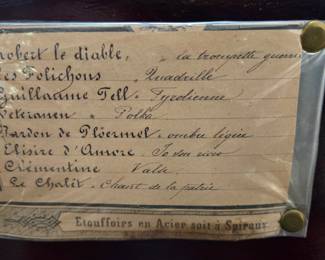 robert le diable, „ la trompette guerrière
Les Folichons „ Quadrille
Guillaume Tell - Tyrolienne
Veteranen „ Polka
Pardon de Plöermel - ombre légère
Elisire d'Amore Io son ricco
Clémentine Valse
Le Chalêt - Chant de la patrie
Etouffoirs en Acier soit à Spiraux